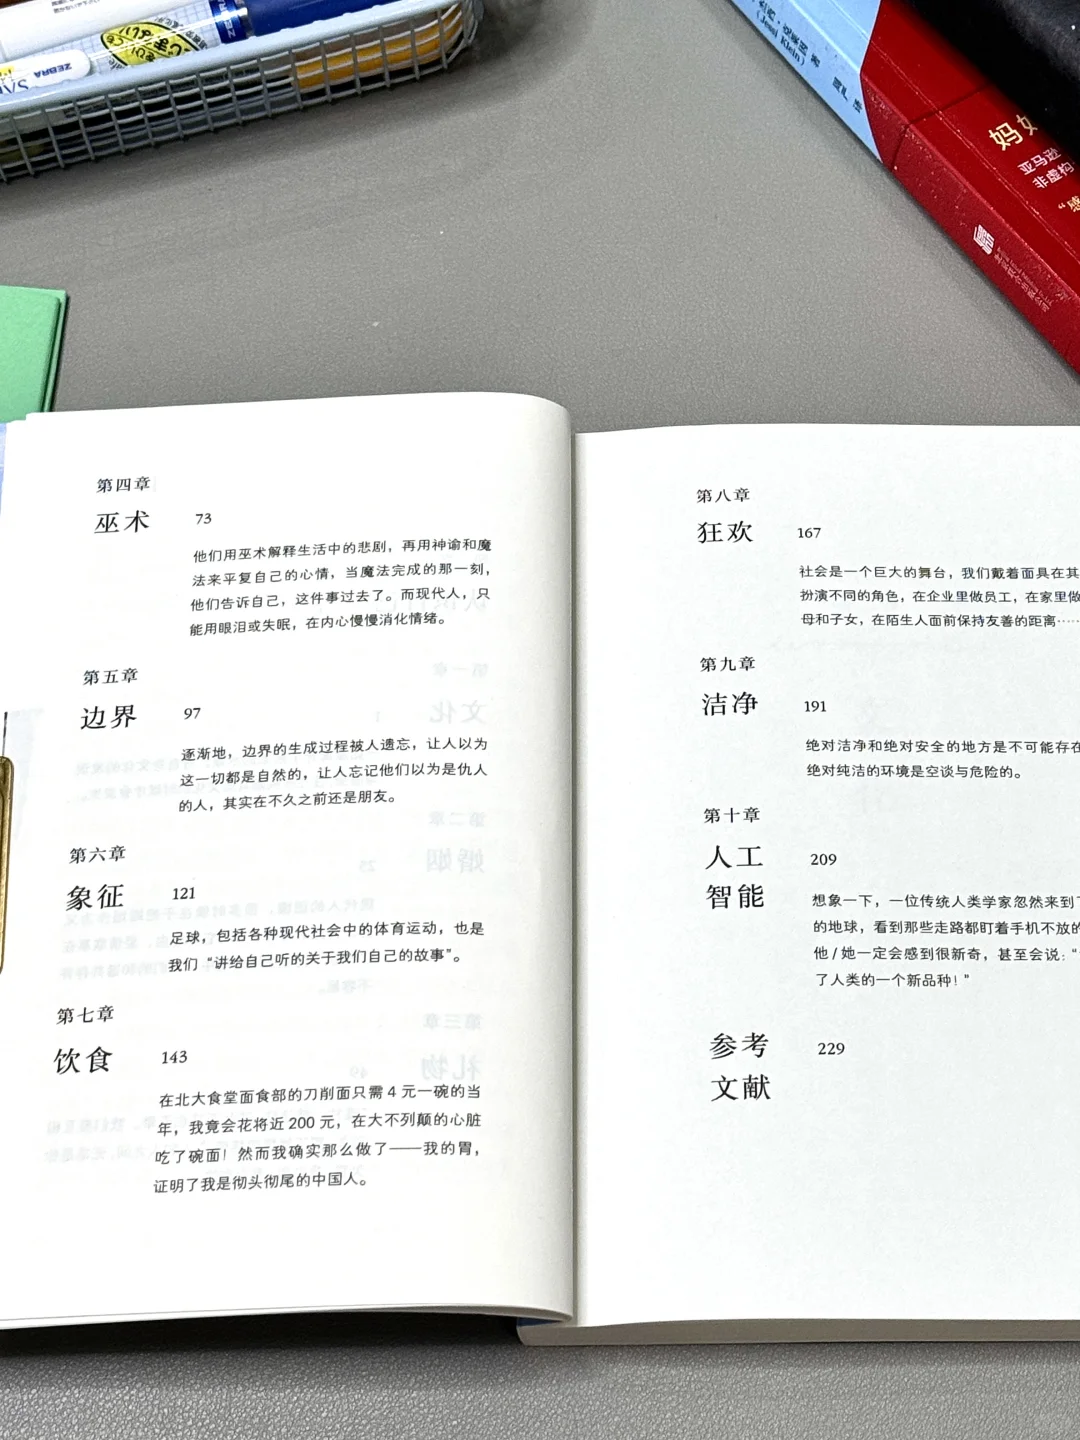 ZEBRA
杰西·克莱因 著
(Jessi Klein)
周严 译
亚马逊
非虚构
第四章
巫术 73
他们用巫术解释生活中的悲剧，再用神谕和魔
法来平复自己的心情，当魔法完成的那一刻，
他们告诉自己，这件事过去了。而现代人，只
能用眼泪或失眠，在内心慢慢消化情绪。
第五章
边界 97
逐渐地，边界的生成过程被人遗忘，让人以为
这一切都是自然的，让人忘记他们以为是仇人
的人，其实在不久之前还是朋友。
第六章
象征 121
足球，包括各种现代社会中的体育运动，也是
我们“讲给自己听的关于我们自己的故事”。
第七章
饮食 143
在北大食堂面食部的刀削面只需 4 元一碗的当
年，我竟会花将近 200 元，在大不列颠的心脏
吃了碗面！然而我确实那么做了——我的胃，
证明了我是彻头彻尾的中国人。
第八章
狂欢 167
社会是一个巨大的舞台，我们戴着面具在其
扮演不同的角色，在企业里做员工，在家里做
母和子女，在陌生人面前保持友善的距离……
第九章
洁净 191
绝对洁净和绝对安全的地方是不可能存在
绝对纯洁的环境是空谈与危险的。
第十章
人工 209
智能
想象一下，一位传统人类学家忽然来到了
的地球，看到那些走路都盯着手机不放的
他 / 她一定会感到很新奇，甚至会说：“
了人类的一个新品种！”
参考 229
文献